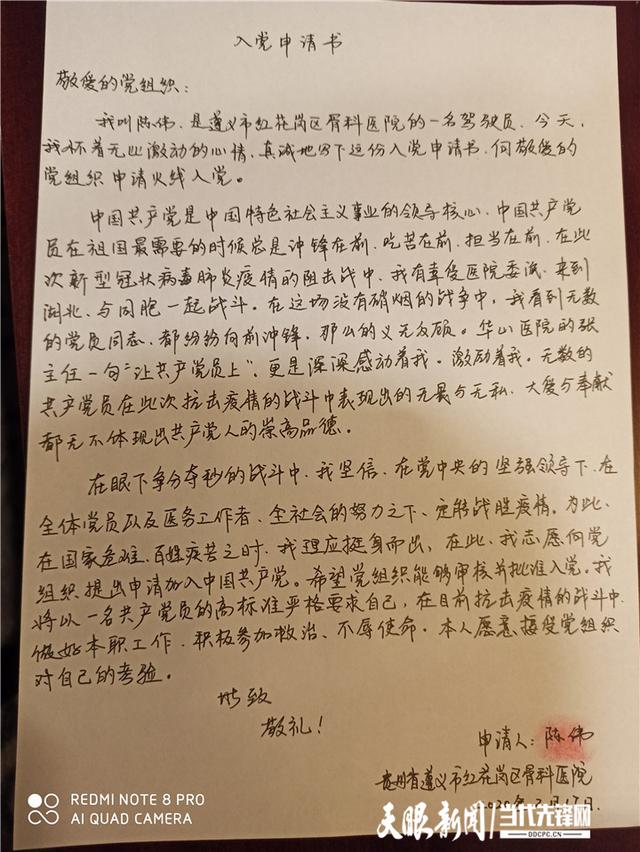 入党申请书
敬爱的党组织：
我叫陈伟，是遵义市红花岗区骨科医院的一名驾驶员，今天，
我怀着无比激动的心情，真诚地写下这份入党申请书，向敬爱的
党组织申请火线入党。
中国共产党是中国特色社会主义事业的领导核心，中国共产党
员在祖国最需要的时候总是冲锋在前，吃苦在前，担当在前，在此
次新型冠状病毒肺炎疫情的阻击战中，我有幸受医院委派，来到
湖北，与同胞一起战斗。在这场没有硝烟的战争中，我看到无数
的党员同志，都纷纷向前冲锋，那么的义无反顾。华山医院的张
主任一句“让共产党员上”，更是深深感动着我，激励着我。无数的
共产党员在此次抗击疫情的战斗中表现出的无畏与无私，大爱与奉献
都无不体现出共产党人的崇高品德。
在眼下争分夺秒的战斗中，我坚信，在党中央的坚强领导下，在
全体党员以及医务工作者、全社会的努力之下、定能战胜疫情。为此、
在国家危难、百姓疾苦之时，我理应挺身而出，在此、我志愿向党
组织提出申请加入中国共产党。希望党组织能够审核并批准入党。我
将以一名共产党员的高标准严格要求自己，在目前抗击疫情的战斗中，
做好本职工作，积极参加救治、不辱使命，本人愿意接受党组织
对自己的考验。
此致
敬礼！
申请人：陈伟
贵州省遵义市红花岗区骨科医院
2020年2月17日
REDMI NOTE 8 PRO
AI QUAD CAMERA
天眼新闻 当代先锋网
DDCPC.CN